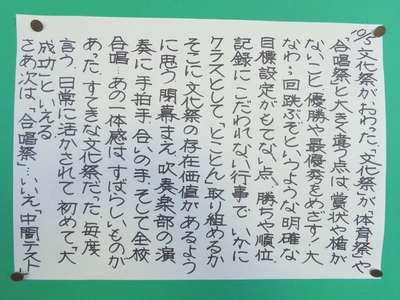 10/5 文化祭がおわった。"文化祭が"体育祭"や
"合唱祭"と大きく違う点は、賞状や楯が
ないこと。優勝や最優秀をめざす!大
なわ○○回跳ぶぞというような明確な
目標設定がもてない点。勝ちや順位、
記録にこだわれない行事で、いかに
クラスとして、"とことん"取り組めるか
そこに文化祭の存在価値があるよう
に思う。開幕まえ、吹奏楽部の演
奏に手拍子、合いの手、そして全校
合唱…あの一体感は、すばらしいものが
あった。すてきな文化祭だった。毎度
言う、日常に活かされて、初めて、"大
成功"といえる
さあ、次は、"合唱祭"…いえ、中間テスト